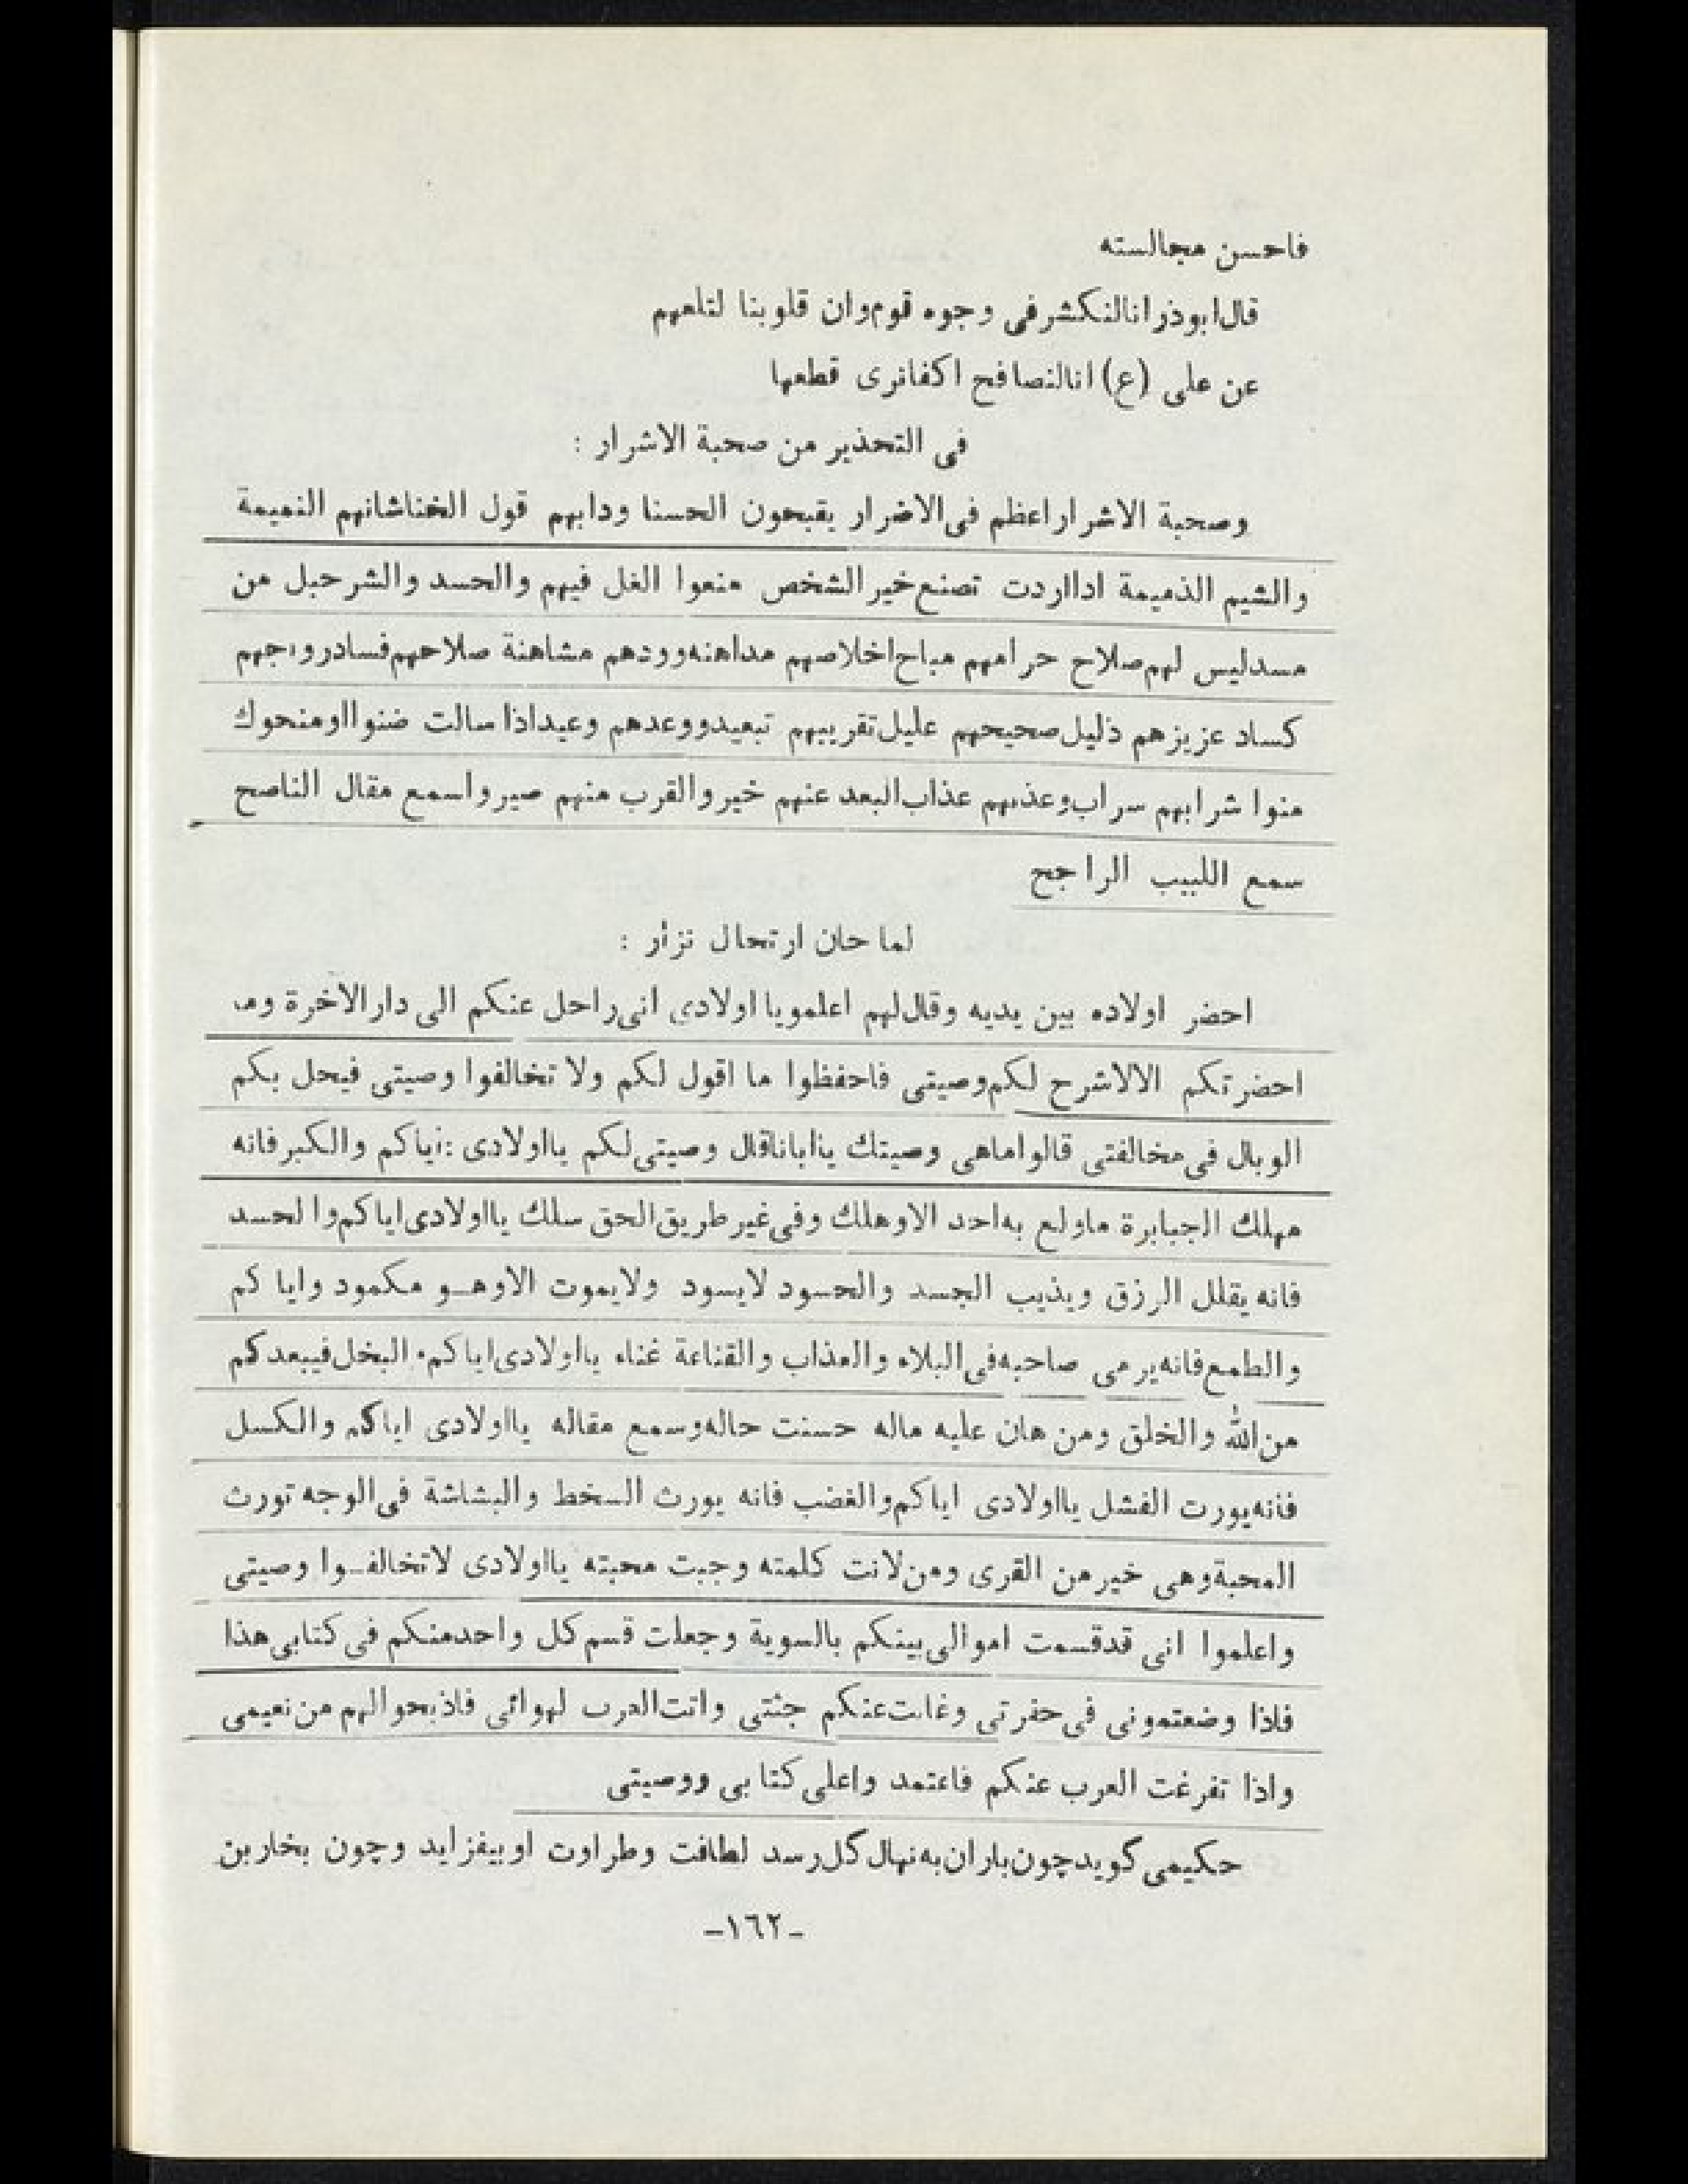 فاحسن مجالسته
قال ابوذر انا لنكشر فى وجوه قوم وان قلوبنا لتلعهم
عن على (ع) انا لنصافح اكفا نرى قطعها
فى التحذير من صحبة الاشرار :
وصحبة الاشرار اعظم فى الاضرار يقبحون الحسنا ودابهم قول الخنا شانهم النميمة
والشيم الذميمة اذا اردت تصنع خير الشخص منعوا الغل فيهم والحسد والشر حبل من
مسد ليس لهم صلاح حرامهم مباح اخلاصهم مداهنه وودهم مشاهنة صلاحهم فساد رواجهم
كساد عزيزهم ذليل صحيحهم عليل تقريبهم تبعيد ووعدهم وعيد اذا سالت ضنوا او منحوك
منوا شرابهم سراب وعذبهم عذاب البعد عنهم خير والقرب منهم صير واسمع مقال الناصح
سمع اللبيب الراجح
لما حان ارتحال نزار :
احضر اولاده بين يديه وقال لهم اعلمو يا اولادى انى راحل عنكم الى دار الاخرة وما
احضرتكم الا لاشرح لكم وصيتى فاحفظوا ما اقول لكم ولا تخالفوا وصيتى فيحل بكم
الوبال فى مخالفتى قالوا ماهى وصيتك يا ابانا قال وصيتى لكم يا اولادى : اياكم والكبر فانه
مهلك الجبابرة ماولع به احد الا وهلك وفى غير طريق الحق سلك يا اولادى اياكم والحسد
فانه يقلل الرزق ويذيب الجسد والحسود لايسود ولايموت الا وهـو مكمود وايا كم
والطمع فانه يرمى صاحبه فى البلاء والعذاب والقناعة غناء يا اولادى اياكم و البخل فيبعد كم
من الله والخلق ومن هان عليه ماله حسنت حاله وسمع مقاله يا اولادى اياكم والكسل
فانه يورت الفشل يا اولادى اياكم والغضب فانه يورث السخط والبشاشة فى الوجه تورث
المحبة وهى خير من القرى ومن لانت كلمته وجبت محبته يا اولادى لاتخالفـوا وصيتى
واعلموا انى قد قسمت اموالى بينكم بالسوية وجعلت قسم كل واحد منكم فى كتابى هذا
فاذا وضعتمونى فى حفرتى وغابت عنكم جثتى واتت العرب لهوائى فاذبحوا لهم من نعيمى
واذا تفرغت العرب عنكم فاعتمد واعلى كتابى ووصيتى
حكيمى گويد چون باران به نهال گل رسد لطافت وطراوت او بيفزايد وچون بخاربن
-١٦٢-